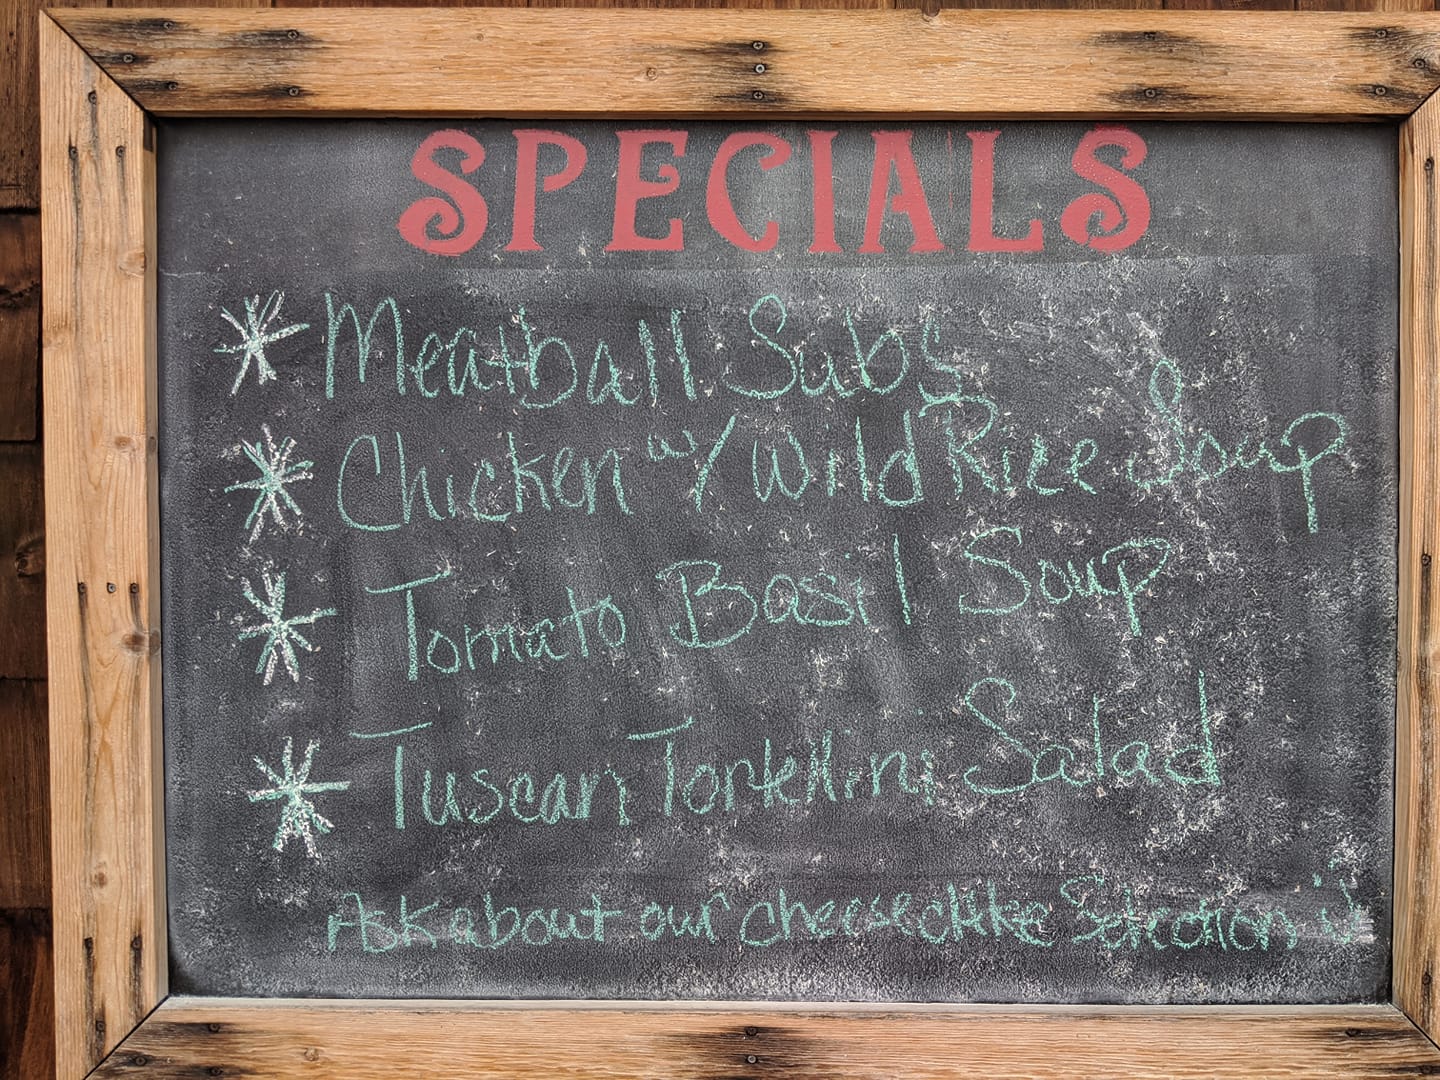 SPECIALS
* Meatball Subs
* Chicken w/ Wild Rice Soup
* Tomato Basil Soup
* Tuscan Tortellini Salad
Ask about our cheesecake Selection :)